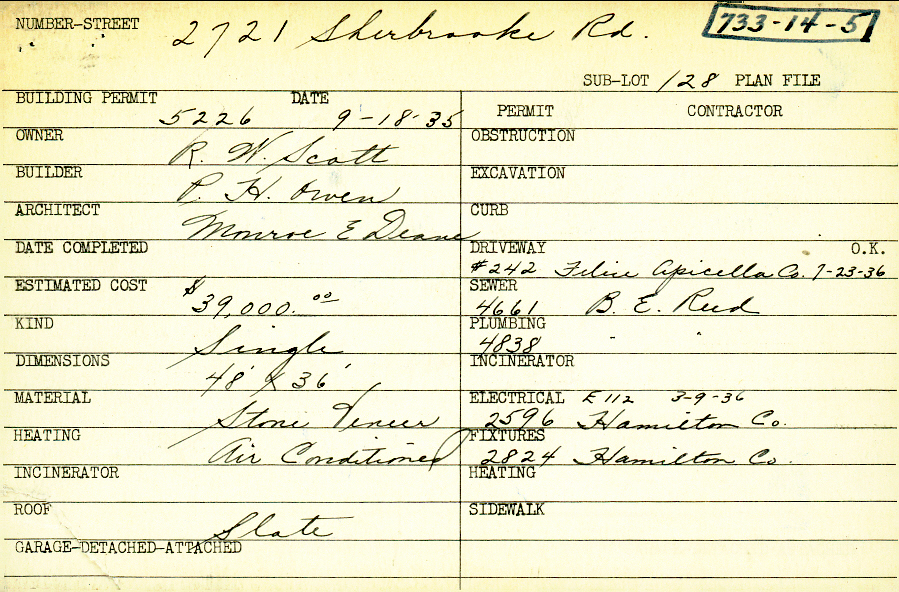 NUMBER-STREET 2721 Sherbrooke Rd. 733-14-5
SUB-LOT 128 PLAN FILE
BUILDING PERMIT 5226 DATE 9-18-35
OWNER R. W. Scott
BUILDER P. H. Owen
ARCHITECT Monroe E Deane
DATE COMPLETED
ESTIMATED COST $39,000.00
KIND Single
DIMENSIONS 48' X 36'
MATERIAL Stone Veneer
HEATING Air Conditioned
INCINERATOR
ROOF Slate
GARAGE-DETACHED-ATTACHED
PERMIT CONTRACTOR
OBSTRUCTION
EXCAVATION
CURB
DRIVEWAY O.K.
#242 Apicella Co. 7-23-36
SEWER
4661 B. E. Reed
PLUMBING
4838 " "
INCINERATOR
ELECTRICAL E112 3-9-36
2596 Hamilton Co.
FIXTURES
2824 Hamilton Co.
HEATING
SIDEWALK